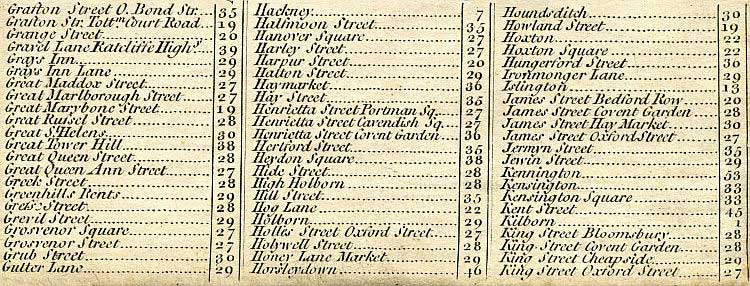 Grafton Street O. Bond Str. 35
Grafton Str. Tottm. Court Road 19
Grange Street 20
Gravel Lane Ratcliffe Highy. 39
Grays Inn 29
Grays Inn Lane 29
Great Maddox Street 27
Great Marlborough Street 27
Great Marybone Street 19
Great Russel Street 28
Great St. Helens 30
Great Tower Hill 38
Great Queen Street 28
Great Queen Ann Street 27
Greek Street 28
Greenhills Rents 29
Gress Street 28
Grevil Street 29
Grosvenor Square 27
Grosvenor Street 27
Grub Street 30
Gutter Lane 29
Hackney 7
Halfmoon Street 35
Hanover Square 27
Harley Street 27
Harpur Street 20
Halton Street 29
Haymarket 36
Hay Street 35
Henrietta Street Portman Sq. 27
Henrietta Street Cavendish Sq. 27
Henrietta Street Covent Garden 36
Hertford Street 35
Heydon Square 38
Hide Street 28
High Holborn 28
Hill Street 35
Hog Lane 22
Holborn 29
Holles Street Oxford Street 27
Holywell Street 28
Honey Lane Market 29
Horsleydown 46
Houndsditch 30
Howland Street 19
Hoxton 22
Hoxton Square 22
Hungerford Street 36
Ironmonger Lane 29
Islington 13
James Street Bedford Row 20
James Street Covent Garden 28
James Street Hay Market 30
James Street Oxford Street 27
Jermyn Street 35
Jewin Street 29
Kennington 53
Kensington 33
Kensington Square 33
Kent Street 45
Kilborn 1
King Street Bloomsbury 28
King Street Covent Garden 28
King Street Cheapside 29
King Street Oxford Street 27